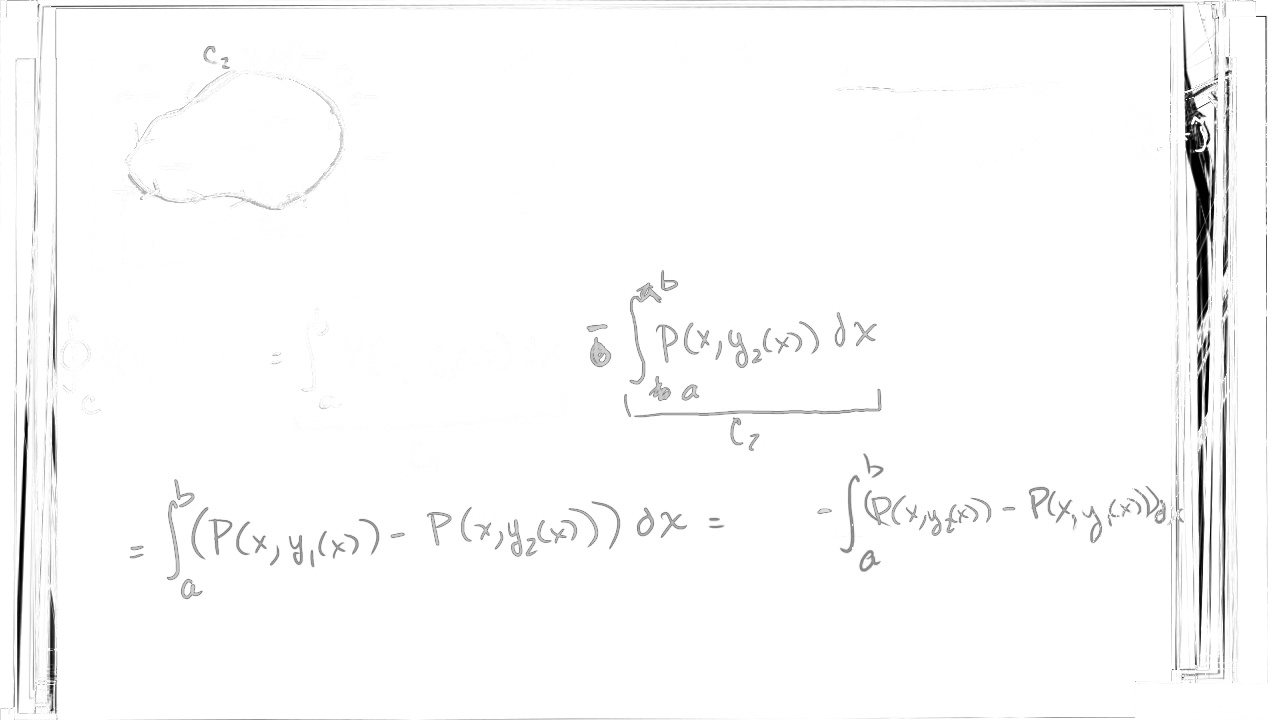 C₂
= ∫ₐᵇ
c
- ∫ₐᵇ P(x, y₂(x)) dx
C₂
= ∫ₐᵇ (P(x, y₁(x)) - P(x, y₂(x))) dx = - ∫ₐᵇ (P(x, y₂(x)) - P(x, y₁(x))) dx